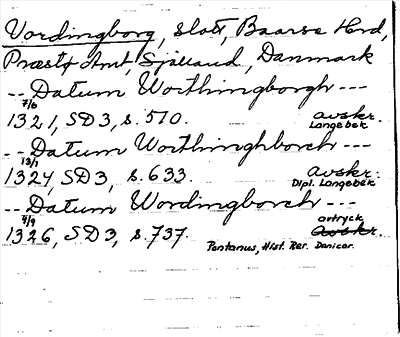 Vordingborg, slott, Baarse Hrd,
Præstø Amt, Sjælland, Danmark
-- Datum Worthingborgh ---
7/6
1321, SD3, s. 510. avskr.
Langebek
-- Datum Worthinghborch ---
13/1
1324, SD3, s. 633. avskr.
Dipl. Langebek
-- Datum Wordingborch ---
4/9 avtryck
1326, SD3, s. 737. Avskr.
Pontanus, Hist. Rer. Danicar.